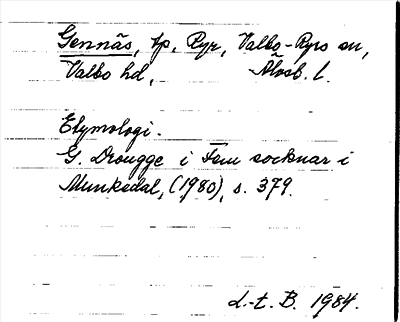 Gennäs, tp, Ryr, Valbo-Ryrs sn,
Valbo hd, Älvsb. l.
Etymologi.
G. Drougge i Fem socknar i
Munkedal, (1980), s. 379.
L-t. B. 1984.